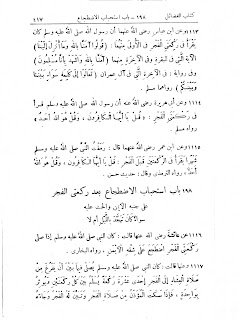 كتاب الفضائل ١٩٨ - باب استحباب الاضطجاع ٤١٧
١١١٣ وعن ابن عباس رضي الله عنهما أن رسول الله صلى الله عليه وسلم كان
يقرأ في ركعتي الفجر في الأولى منهما : ( قولوا آمنا بالله وما أنزل إلينا )
الآية التي في البقرة وفي الآخرة منهما ( آمنا بالله واشهد بأنا مسلمون )
وفي رواية : في الآخرة التي في آل عمران ( تعالوا إلى كلمة سواء بيننا
وبينكم ) رواهما مسلم .
١١١٤ وعن أبي هريرة رضي الله عنه أن رسول الله صلى الله عليه وسلم قرأ
في ركعتي الفجر : « قل يا أيها الكافرون ، وقل هو الله أحد » رواه
مسلم .
١١١٥ وعن ابن عمر رضي الله عنهما قال : رمقت النبي صلى الله عليه وسلم
شهرا يقرأ في الركعتين قبل الفجر : قل يا أيها الكافرون ، وقل هو الله
أحد » رواه الترمذي وقال : حديث حسن .
١٩٨ باب استحباب الاضطجاع بعد ركعتي الفجر
على جنبه الأيمن والحث عليه
سواء كان تهجد بالليل أم لا
١١١٦ عن عائشة رضي الله عنها قالت : كان النبي صلى الله عليه وسلم إذا صلى
ركعتي الفجر اضطجع على شقه الأيمن . رواه البخاري .
١١١٧ وعنها قالت : كان النبي صلى الله عليه وسلم يصلي فيما بين أن يفرغ من
صلاة العشاء إلى الفجر إحدى عشرة ركعة يسلم بين كل ركعتين ويوتر
بواحدة ، فإذا سكت المؤذن من صلاة الفجر وتبين له الفجر وجاءه